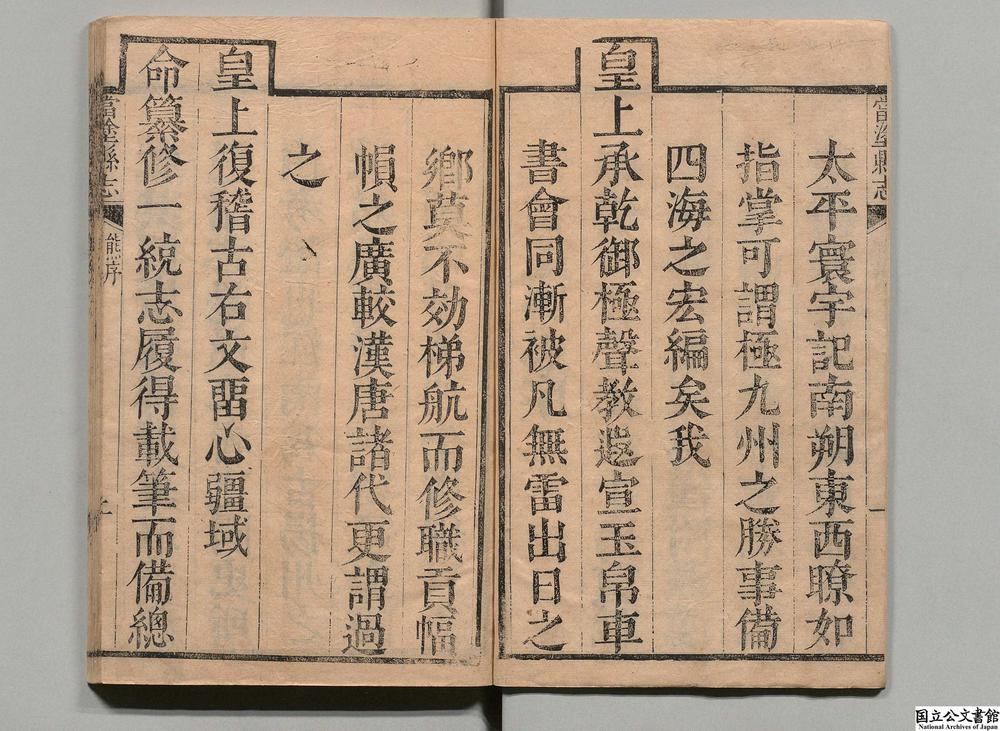 當塗縣志
一
太平寰宇記南朔東西瞭如
指掌可謂極九州之勝事備
四海之宏編矣我
皇上承乾御極聲教遐宣玉帛車
書會同漸被凡無雷出日之
鄉莫不効梯航而修職貢幅
幀之廣較漢唐諸代更謂過
之
皇上復稽古右文畱心疆域
命纂修一統志履得載筆而備總
當塗縣志
熊序
国立公文書館
National Archives of Japan